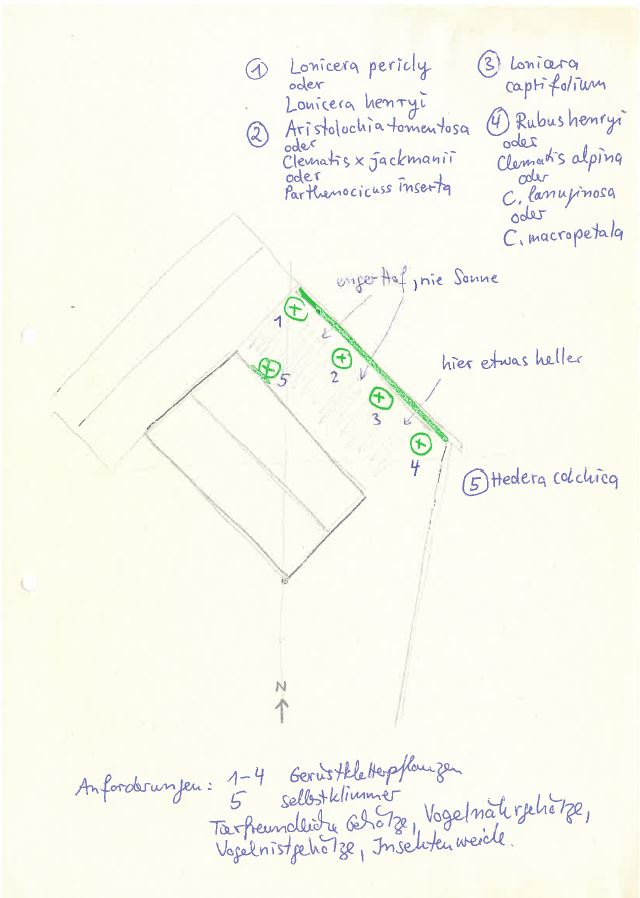 ① Lonicera pericly
oder
Lonicera henryi
② Aristolochia tomentosa
oder
Clematis x jackmanii
oder
Parthenocicuss inserta
③ Lonicera
caprifolium
④ Rubus henryi
oder
Clematis alpina
oder
C. lanuginosa
oder
C. macropetala
enger Hof, nie Sonne
1
2
hier etwas heller
5
3
4
⑤ Hedera colchica
N
Anforderungen: 1-4 Gerüstkletterpflanzen
5 selbstklimmer
Tierfreundliche Gehölze, Vogelnährgehölze,
Vogelnistgehölze, Insektenweide.